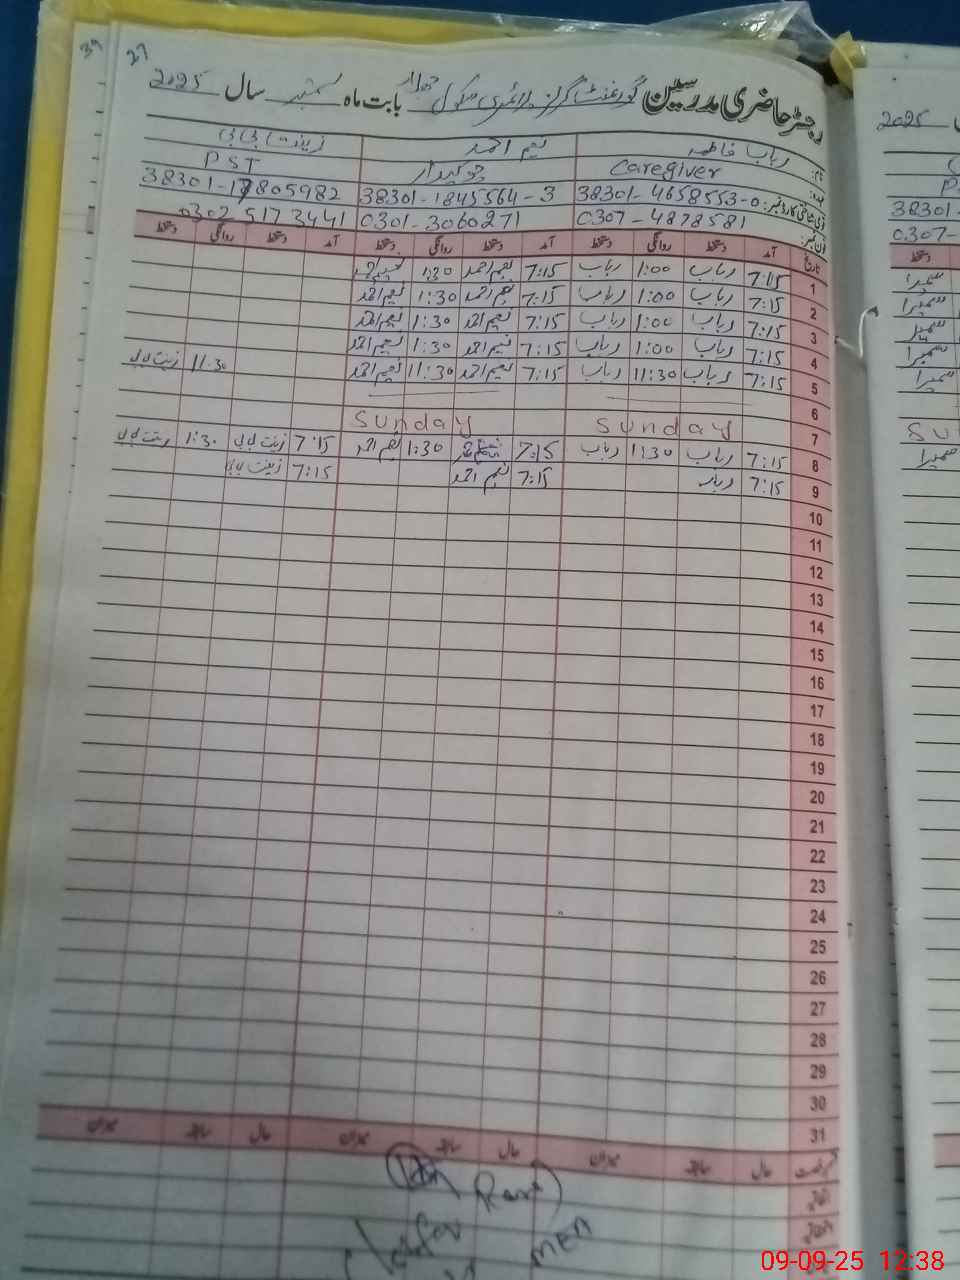 39 27
رجسٹر حاضری مدرسین گورنمنٹ گرلز پرائمری سکول بابت ماہ ستمبر سال 2025
2025
نام: رباب فاطمہ نعیم احمد زینت بی بی
عہدہ: Caregiver چوکیدار PST
قومی شناختی کارڈ نمبر: 38301-4658553-0 38301-1845564-3 38301-17805982
فون نمبر: 0307-4878581 0301-3060271 0302 5173441
تاریخ آمد دستخط روانگی دستخط آمد دستخط روانگی دستخط آمد دستخط روانگی دستخط
1 7:15 رباب 1:00 رباب 7:15 نعیم احمد 1:30 نعیم احمد
2 7:15 رباب 1:00 رباب 7:15 نعیم احمد 1:30 نعیم احمد
3 7:15 رباب 1:00 رباب 7:15 نعیم احمد 1:30 نعیم احمد
4 7:15 رباب 1:00 رباب 7:15 نعیم احمد 1:30 نعیم احمد
5 7:15 رباب 11:30 رباب 7:15 نعیم احمد 11:30 نعیم احمد 11:30 زینت بی بی
6
7 Sunday Sunday
8 7:15 رباب 1:30 رباب 7:15 نعیم احمد 1:30 نعیم احمد 7:15 زینت بی بی 1:30 زینت بی بی
9 7:15 رباب 7:15 نعیم احمد 7:15 زینت بی بی
10
11
12
13
14
15
16
17
18
19
20
21
22
23
24
25
26
27
28
29
30
31
حال سابقہ میزان حال سابقہ میزان حال سابقہ میزان
MEA
38301-
0307-
دستخط
سمیرا
سمیرا
سمیرا
سمیرا
سمیرا
Su
سمیرا
09-09-25 12:38